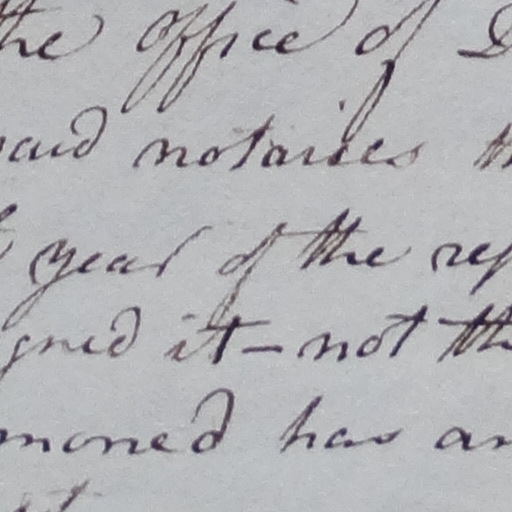 the office of D
said notaries th
year of the rep
gned it - not th
moned has an